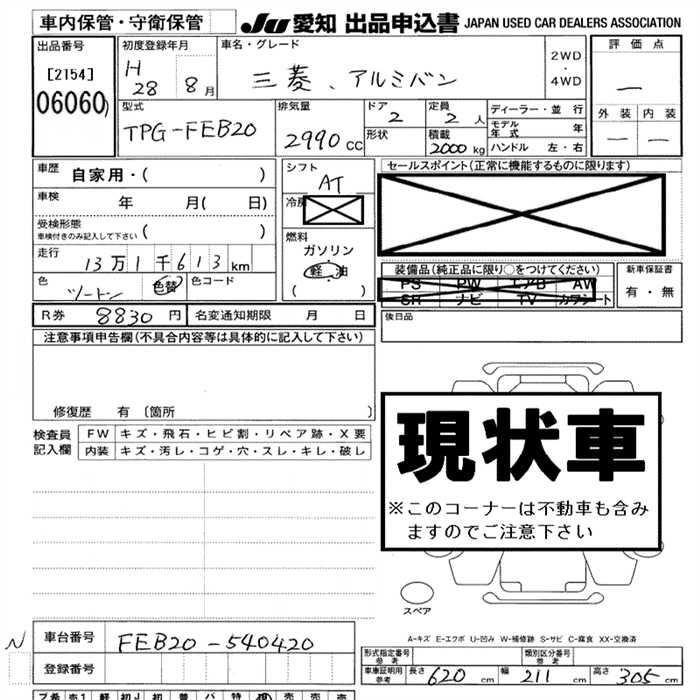 車内保管・守衛保管 JU 愛知 出品申込書 JAPAN USED CAR DEALERS ASSOCIATION
出品番号 初度登録年月 車名・グレード 評価点
[2154] H 28 8月 三菱、アルミバン 2WD・4WD ー
06060 外装 内装
型式 排気量 ドア 2 定員 2人 ディーラー・並行 ー ー
TPG-FEB20 2990 CC 形状 積載 2000 kg モデル年式 年
ハンドル 左・右
車歴 自家用・( ) シフト AT セールスポイント(正常に機能するものに限ります)
車検 年 月( 日) 冷房
受検形態 ( )
車検付きのみ記入して下さい
燃料
走行 13万1千613km ガソリン
軽油
( )
色 ツートン 色替 色コード
装備品(純正品に限り○をつけてください) 新車保証書
PS PW エアB AW 有・無
SR ナビ TV カワシート
R券 8830円 名変通知期限 月 日 後日品
注意事項申告欄(不具合内容等は具体的に記入して下さい)
修復歴 有 〔箇所 〕
検査員 FW キズ・飛石・ヒビ割・リペア跡・X要
記入欄 内装 キズ・汚レ・コゲ・穴・スレ・キレ・破レ
現状車
※このコーナーは不動車も含み
ますのでご注意下さい
スペア
A-キズ E-エクボ U-凹み W-補修跡 S-サビ C-腐食 XX-交換済
N 車台番号 FEB20-540420
登録番号
形式指定番号 参考 類別区分番号 参考
車庫証明用 参考 長さ 620 cm 幅 211 cm 高さ 305 cm